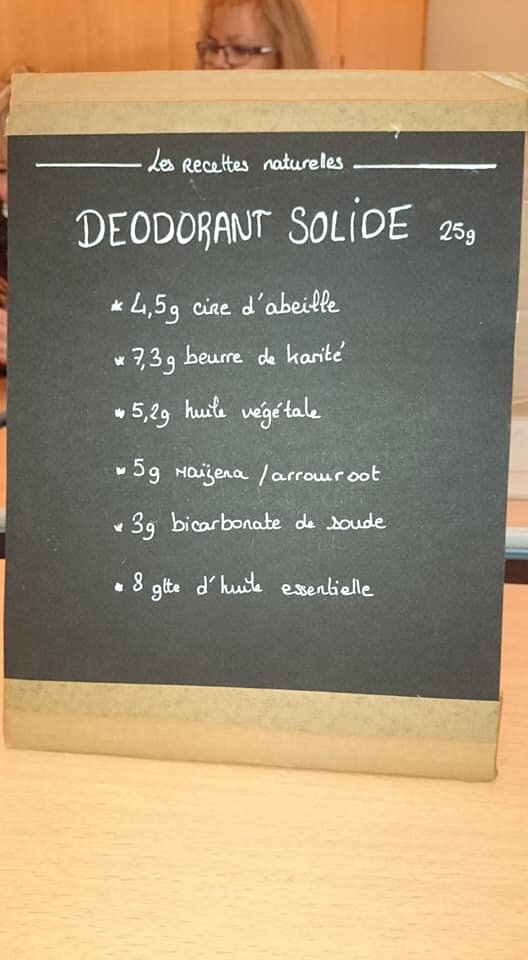 Les Recettes naturelles
DEODORANT SOLIDE 25g
* 4,5g cire d'abeille
* 7,3g beurre de karité
* 5,2g huile végétale
* 5g Maïzena /arrowroot
* 3g bicarbonate de soude
* 8 gtte d'huile essentielle